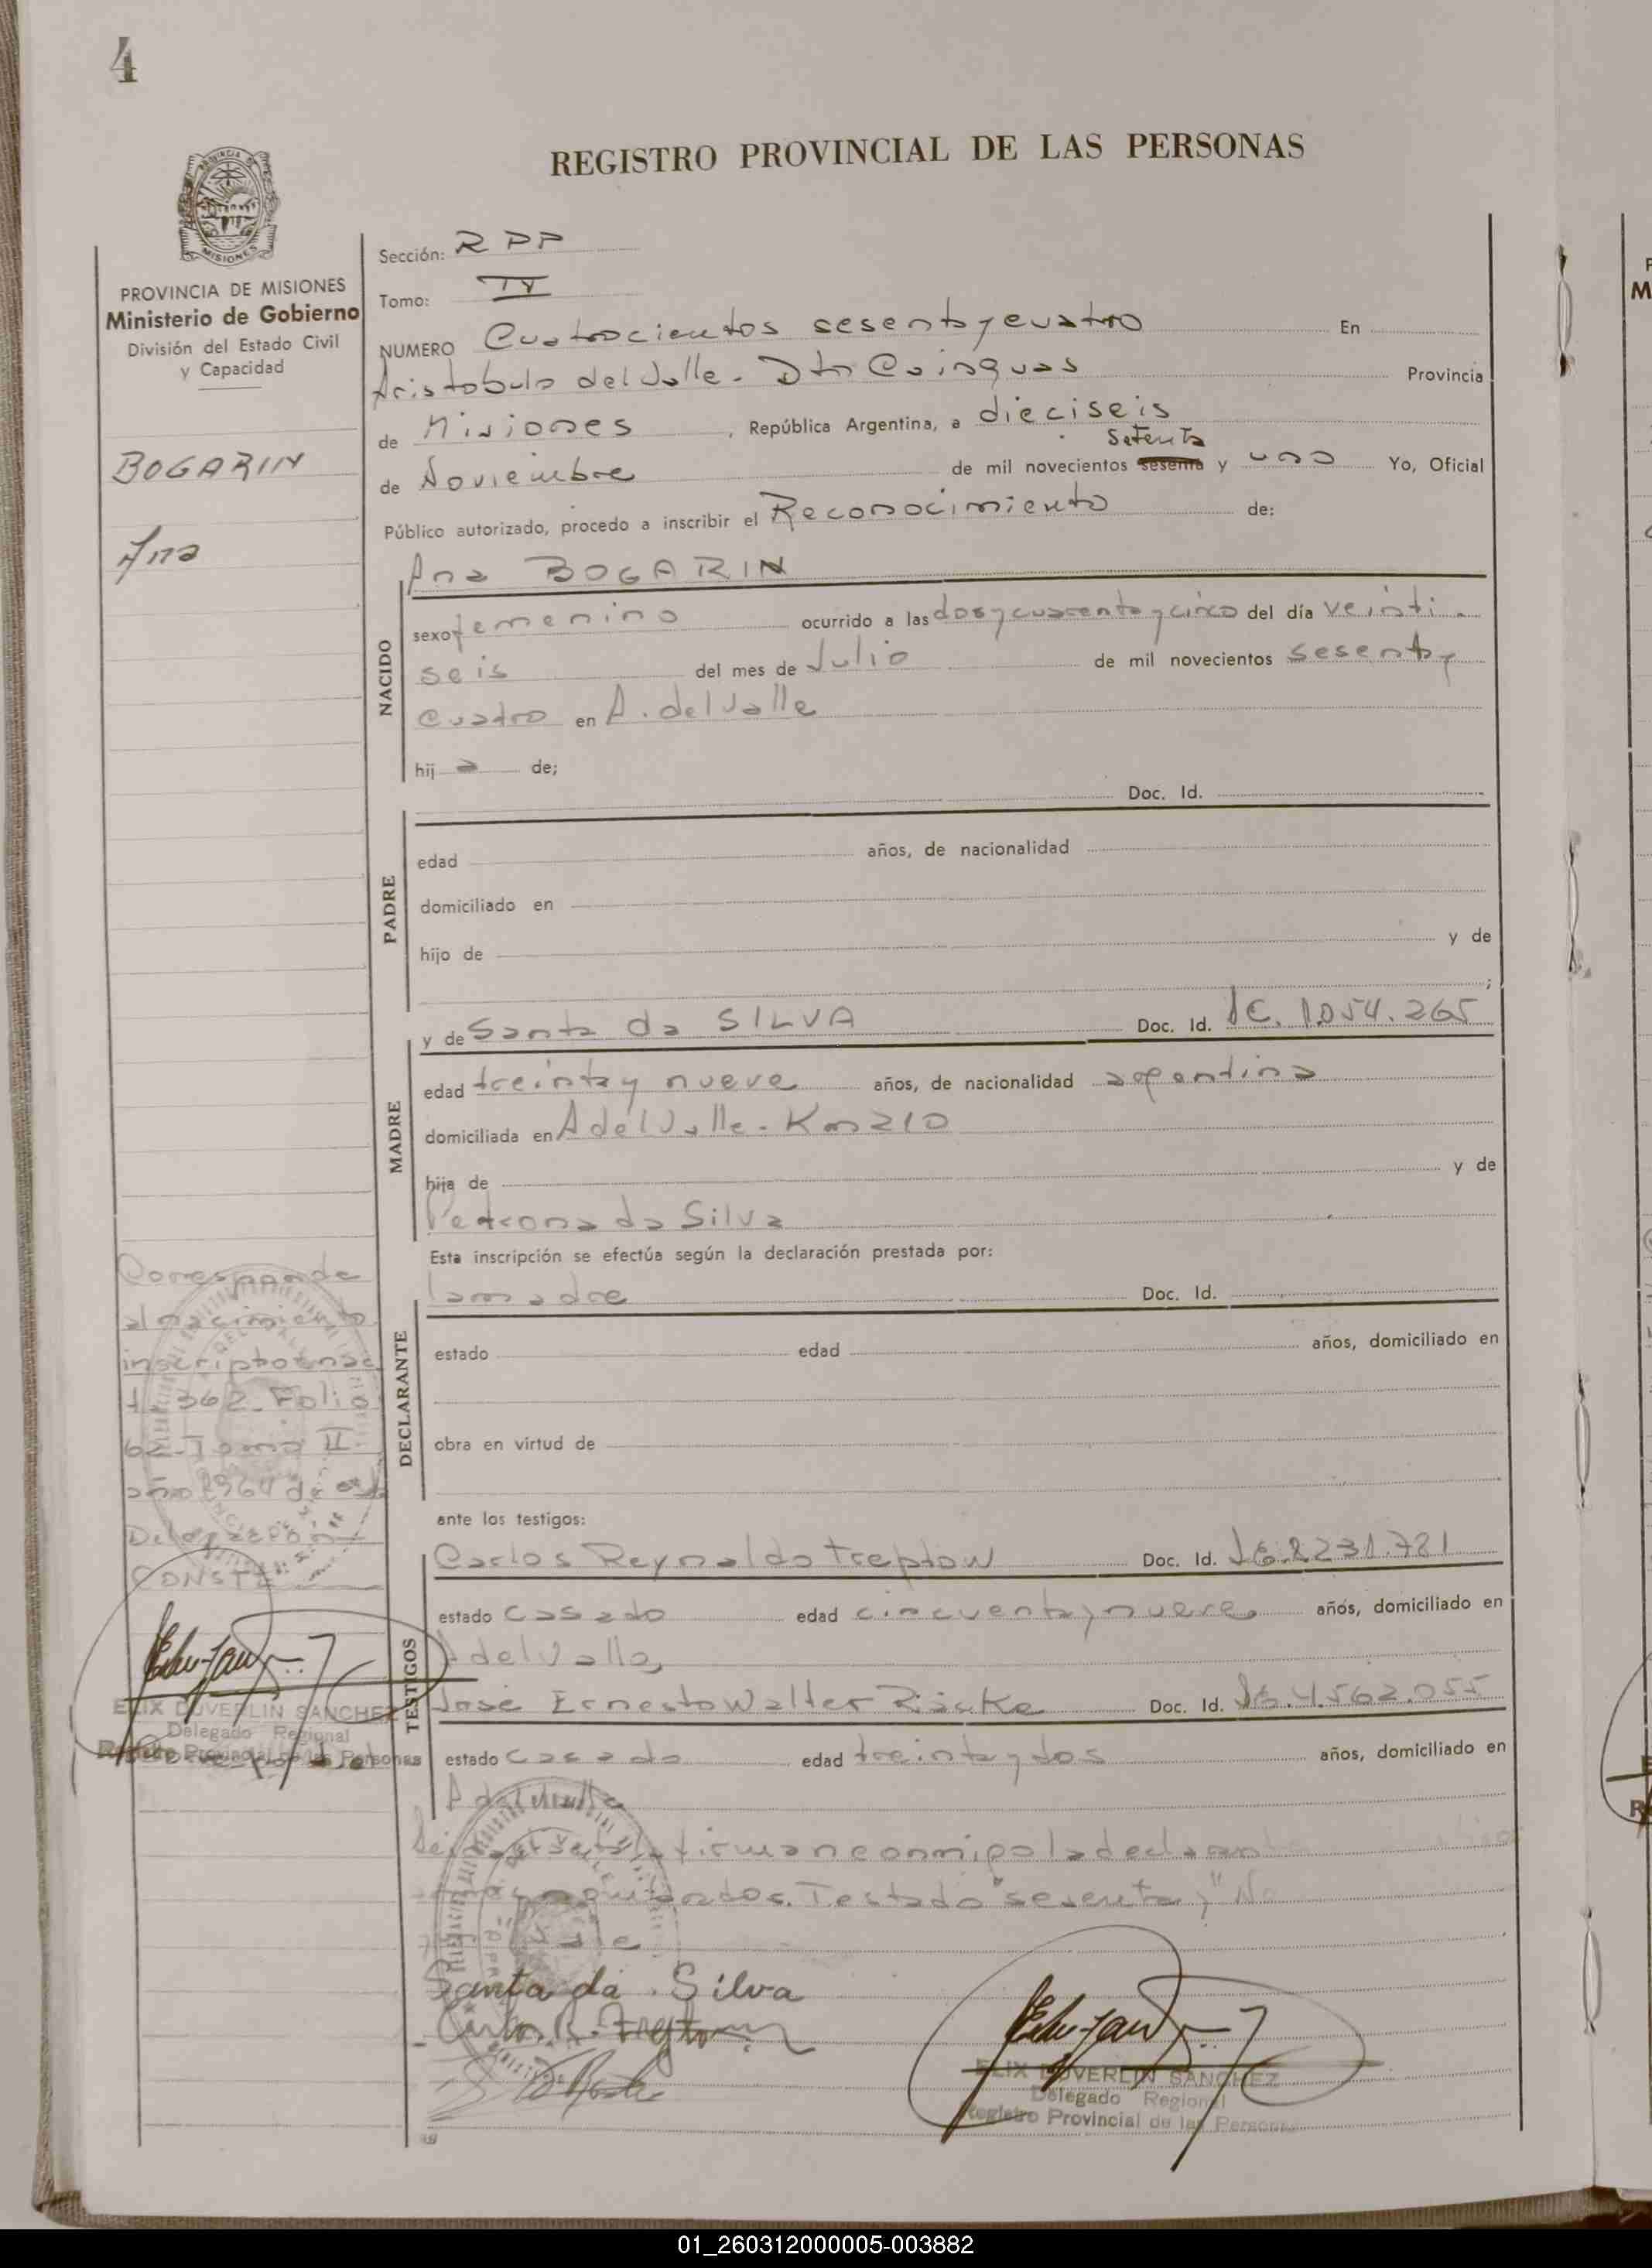 4
REGISTRO PROVINCIAL DE LAS PERSONAS
PROVINCIA DE MISIONES
Ministerio de Gobierno
División del Estado Civil
y Capacidad
BOGARIN
Ana
Sección: RPP
Tomo: IV
NUMERO Cuatrocientos sesenta y cuatro En
Aristobulo del Valle. Dto Cainguas Provincia
de Misiones, República Argentina, a dieciseis
Setenta
de Noviembre de mil novecientos sesenta y uno Yo, Oficial
Público autorizado, procedo a inscribir el Reconocimiento de:
Ana BOGARIN
NACIDO
sexo femenino ocurrido a las dos y cuarenta y cinco del día veinti
seis del mes de Julio de mil novecientos sesenta y
cuatro en A. del Valle
hij a de;
Doc. Id.
PADRE
edad años, de nacionalidad
domiciliado en
hijo de y de
;
y de Santa da SILVA Doc. Id. 1.054.265
MADRE
edad treinta y nueve años, de nacionalidad argentina
domiciliada en A del Valle. Km 210
hija de y de
Petrona da Silva
Esta inscripción se efectúa según la declaración prestada por:
la madre Doc. Id.
DECLARANTE
estado edad años, domiciliado en
obra en virtud de
ante los testigos:
Carlos Reynaldo Treptow Doc. Id.
TESTIGOS
estado casado edad cincuenta y nueve años, domiciliado en
A del Valle
José Ernesto Walter Doc. Id. 4.562.055
estado casado edad treinta y dos años, domiciliado en
A del Valle
firman conmigo la declarante
Testado "sesenta y" No
vale
Santa da Silva
ELIX DUVERLIN SANCHEZ
Delegado Regional
Registro Provincial de las Personas
Corresponde
al nacimiento
inscripto en ac
t. 362 Folio
62 Tomo II
año 1964 de esta
Delegación
CONSTE
ELIX DUVERLIN SANCHEZ
Delegado Regional
Registro Provincial de las Personas
P
M
01_260312000005-003882